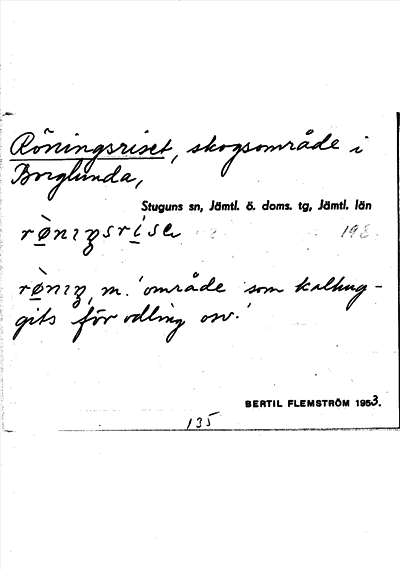 Röningsriset, skogsområde i
Borglunda,
Stuguns sn, Jämtl. ö. doms. tg, Jämtl. län
rø̀nıŋsrı̀sɐ
rø̀nıŋ, m. 'område som kalhug-
gits för odling osv.'
BERTIL FLEMSTRÖM 1953.
135